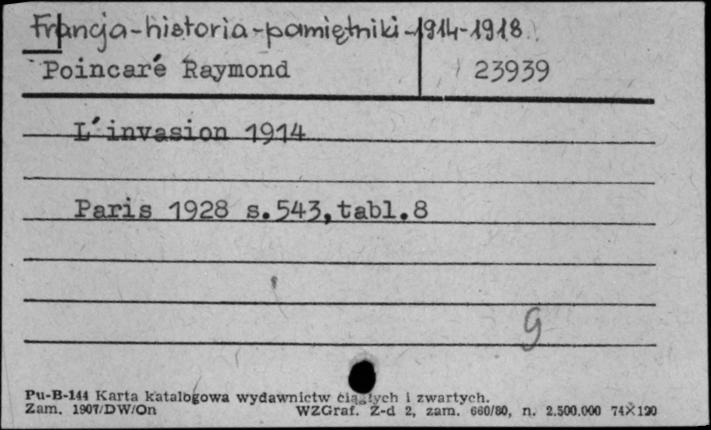 Francja-historia-pamiętniki-1914-1918
Poincaré Raymond 23939
L'invasion 1914
Paris 1928 s.543,tabl.8
g
Pu-B-144 Karta katalogowa wydawnictw ciągłych i zwartych.
Zam. 1907/DW/On WZGraf. Z-d 2, zam. 660/80, n. 2.500.000 74×120